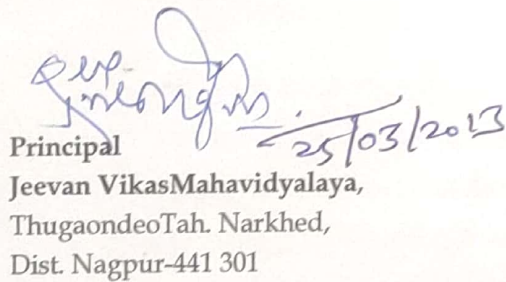 25/03/2013
Principal
Jeevan VikasMahavidyalaya,
ThugaondeoTah. Narkhed,
Dist. Nagpur-441 301